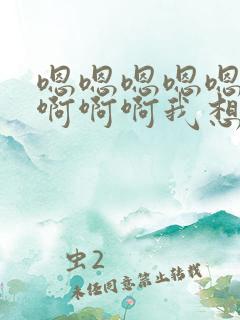 嗯嗯嗯嗯嗯
啊啊啊我想
虫2
未经同意禁止转载